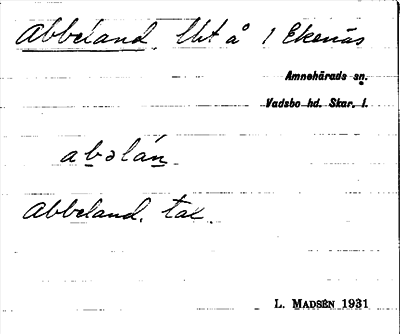 Abbeland. Ut å 1 Ekenäs
Amnehärads sn.
Vadsbo hd. Skar. l.
abəlán
Abbeland. tax.
L. MADSÉN 1931